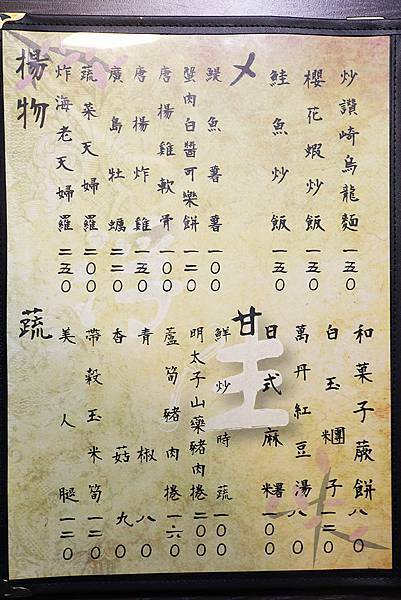 楊物
炸海老天婦羅二五〇
蔬菜天婦羅二〇〇
廣島牡蠣二二〇
唐楊炸雞一五〇
唐楊雞軟骨一〇〇
蟹肉白醬可樂餅一二〇
鯷魚薯薯一〇〇
〆
鮭魚炒飯一五〇
櫻花蝦炒飯一五〇
炒讚崎烏龍麵一五〇
蔬
美人腿一二〇
帶穀玉米筍一二〇
香菇九〇
青椒八〇
蘆筍豬肉捲一六〇
明太子山藥豬肉捲二〇〇
鮮炒時蔬一〇〇
甘
日式麻糬一〇〇
萬丹紅豆湯八〇
白玉糰子一二〇
和菓子蕨餅八〇